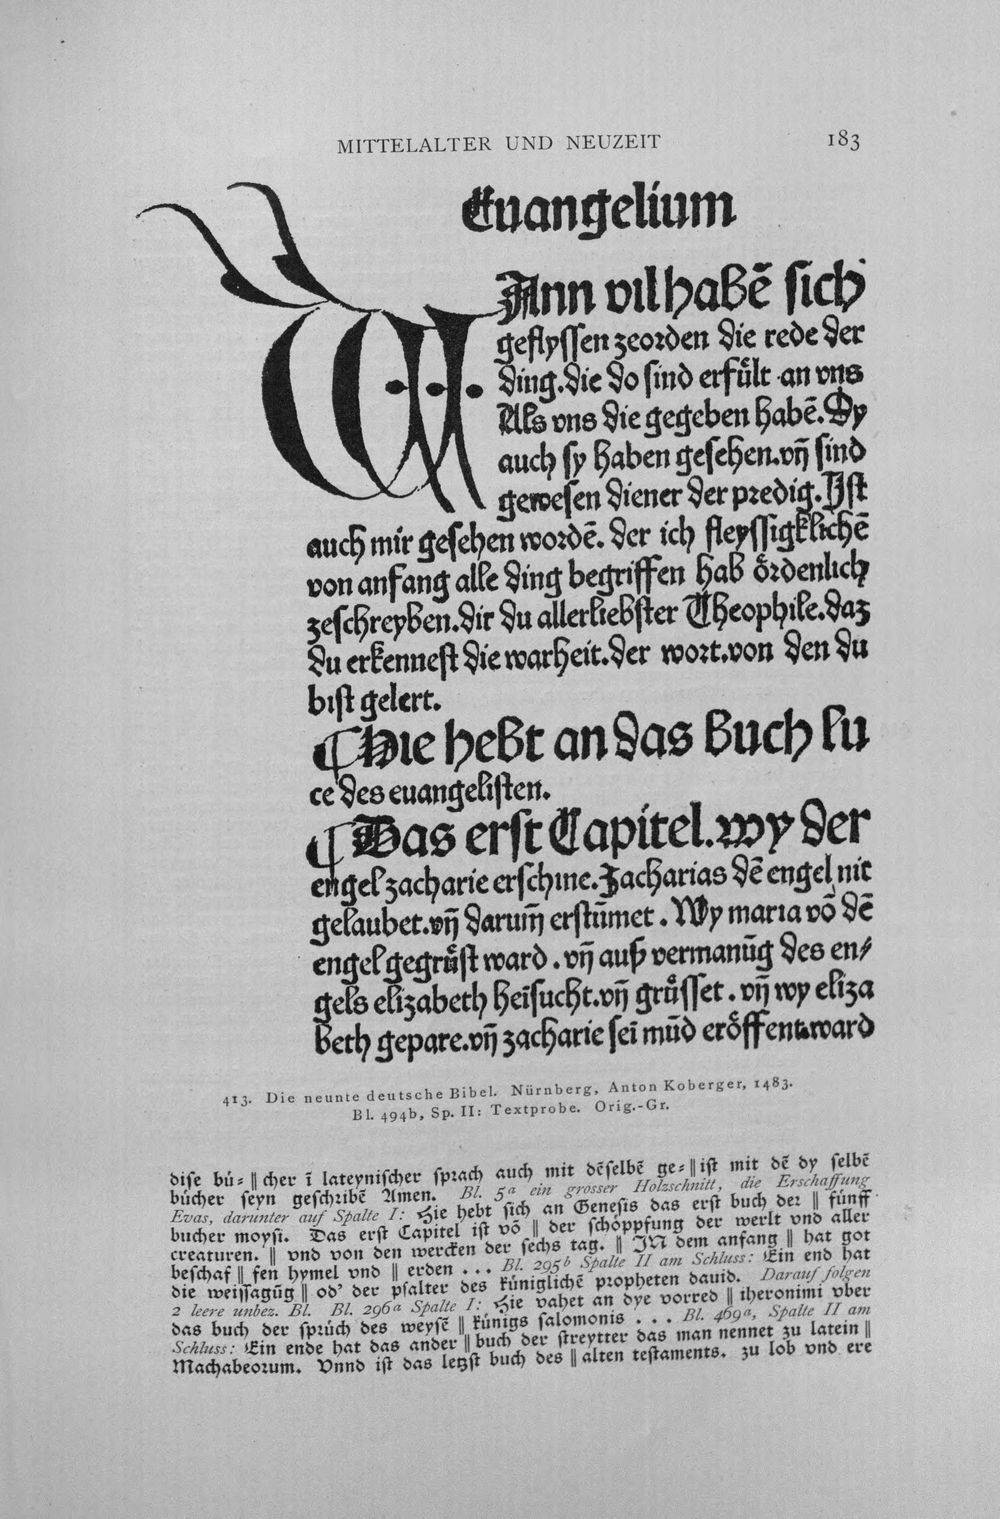 MITTELALTER UND NEUZEIT 183
Euangelium
WAnn vil habē sich
geflyssen zeorden die rede der
ding.die do sind erfült an vns
Als vns die gegeben habē.Dy
auch sy haben gesehen.vñ sind
gewesen diener der predig.Jst
auch mir gesehen wordē. der ich fleyssigklichē
von anfang alle ding begriffen hab ördenlich
zeschreyben.dir du allerliebster Theophile.daz
du erkennest die warheit.der wort.von den du
bist gelert.
¶Hie hebt an das buch lu
ce des euangelisten.
¶Das erst Capitel.wy der
engel zacharie erschine.Zacharias dē engel nit
gelaubet.vñ darum̃ erstūmet . Wy maria vō dē
engel gegrüst ward . vñ auß vermanūg des en/
gels elizabeth heīsucht.vñ grüsset . vñ wy eliza
beth gepare.vñ zacharie seī mūd eröffent ward
413. Die neunte deutsche Bibel. Nürnberg, Anton Koberger, 1483.
Bl. 494b, Sp. II: Textprobe. Orig.-Gr.
dise bü⸗ || cher ī lateynischer sprach auch mit dēselbē ge⸗ || ist mit dē dy selbē
bücher seyn geschribē Amen. Bl. 5a ein grosser Holzschnitt, die Erschaffung
Evas, darunter auf Spalte I: Hie hebt sich an Genesis das erst buch der || fünff
bucher moysi. Das erst Capitel ist vō || der schöppfung der werlt vnd aller
creaturen. || vnd von den wercken der sechs tag. || JN dem anfang || hat got
beschaf || fen hymel vnd || erden ... Bl. 295b Spalte II am Schluss: Ein end hat
die weissagūg || od' der psalter des küniglichē propheten dauid. Darauf folgen
2 leere unbez. Bl. Bl. 296a Spalte I: Hie vahet an dye vorred || iheronimi vber
das buch der sprüch des weysē || künigs salomonis ... Bl. 469a, Spalte II am
Schluss: Ein ende hat das ander || buch der streytter das man nennet zu latein ||
Machabeorum. Vnnd ist das letzst buch des || alten testaments. zu lob vnd ere